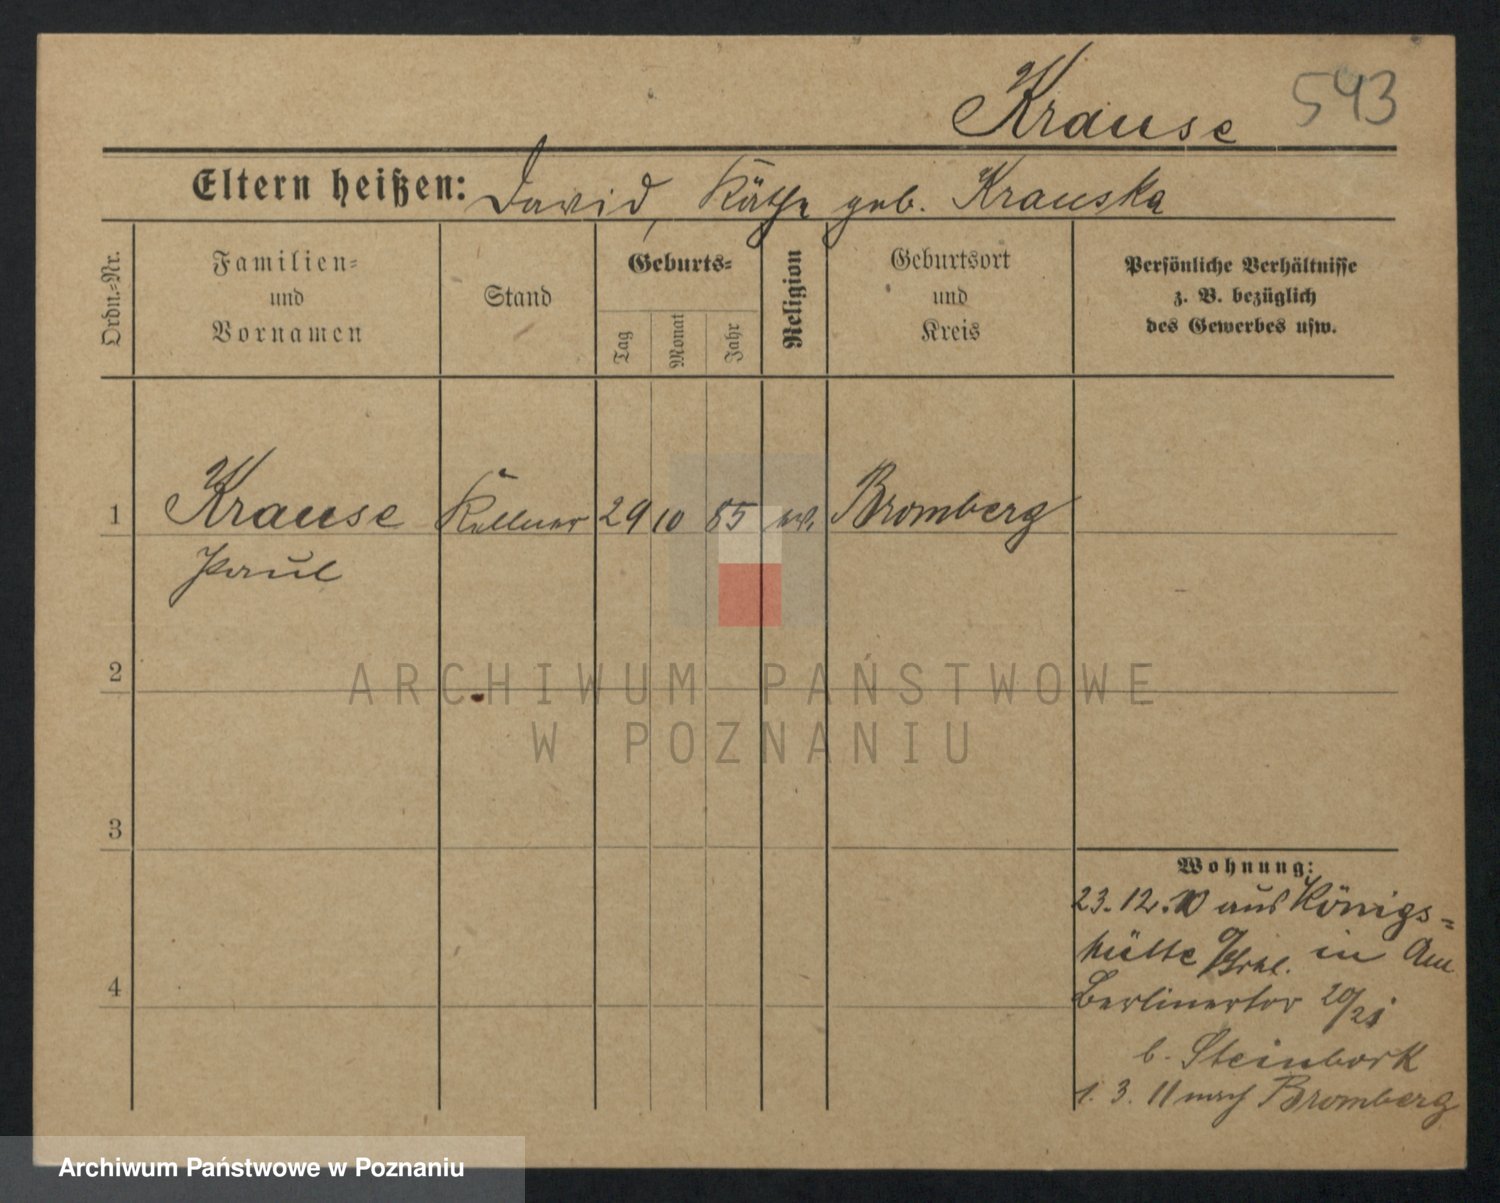 Krause 543
Eltern heißen: David, Käthe geb. Krauska
Ordn.-Nr.
Familien-
und
Vornamen
Stand
Geburts-
Tag
Monat
Jahr
Religion
Geburtsort
und
Kreis
Persönliche Verhältnisse
z. B. bezüglich
des Gewerbes usw.
1 Krause Kellner 29 10 85 ev. Bromberg
Paul
2
ARCHIWUM PAŃSTWOWE
W POZNANIU
3
Wohnung:
23.12.10 aus Königs-
hütte in Am
4
Berlinertor 20/21
b. Steinbork
1. 3. 11 nach Bromberg
Archiwum Państwowe w Poznaniu